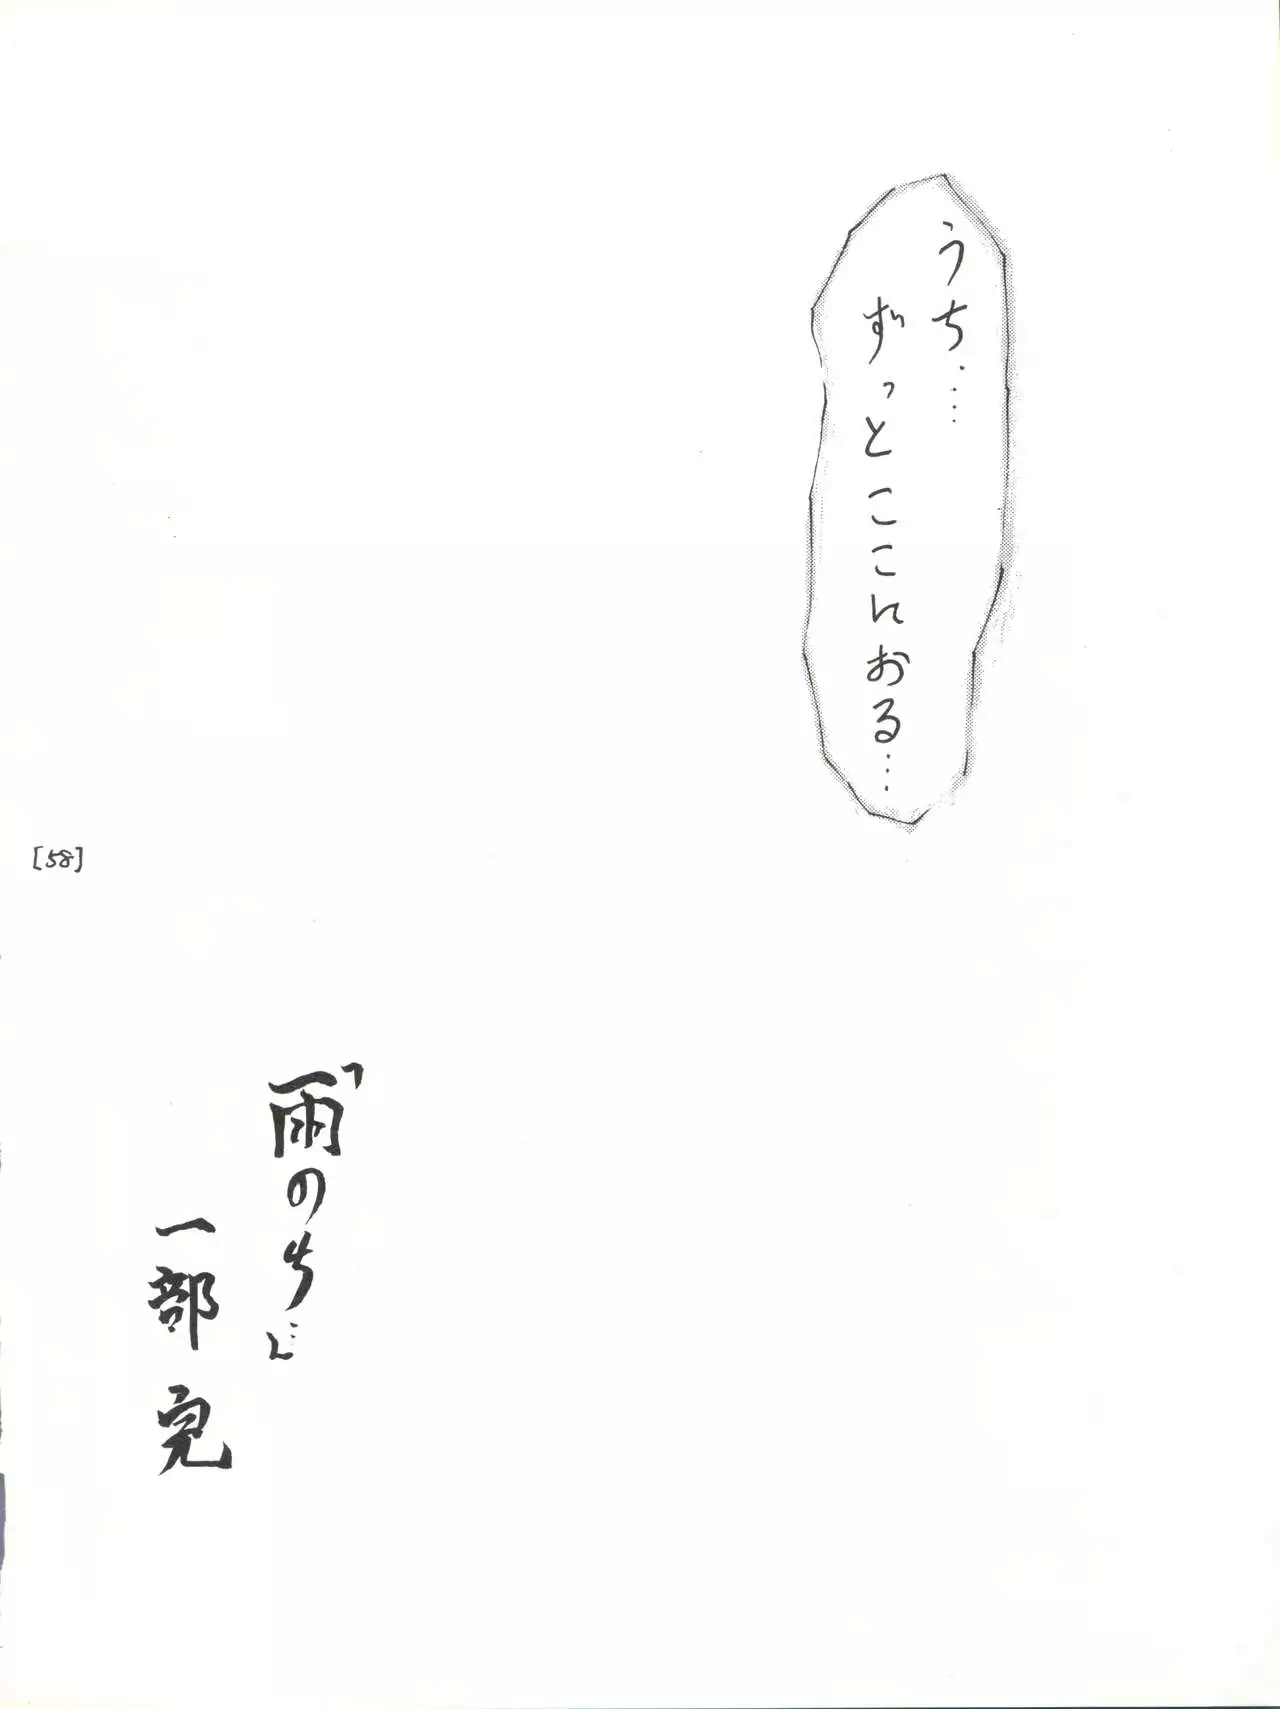 うち‥‥
ずっとここにおる…
[58]
「雨のち…」
一部完